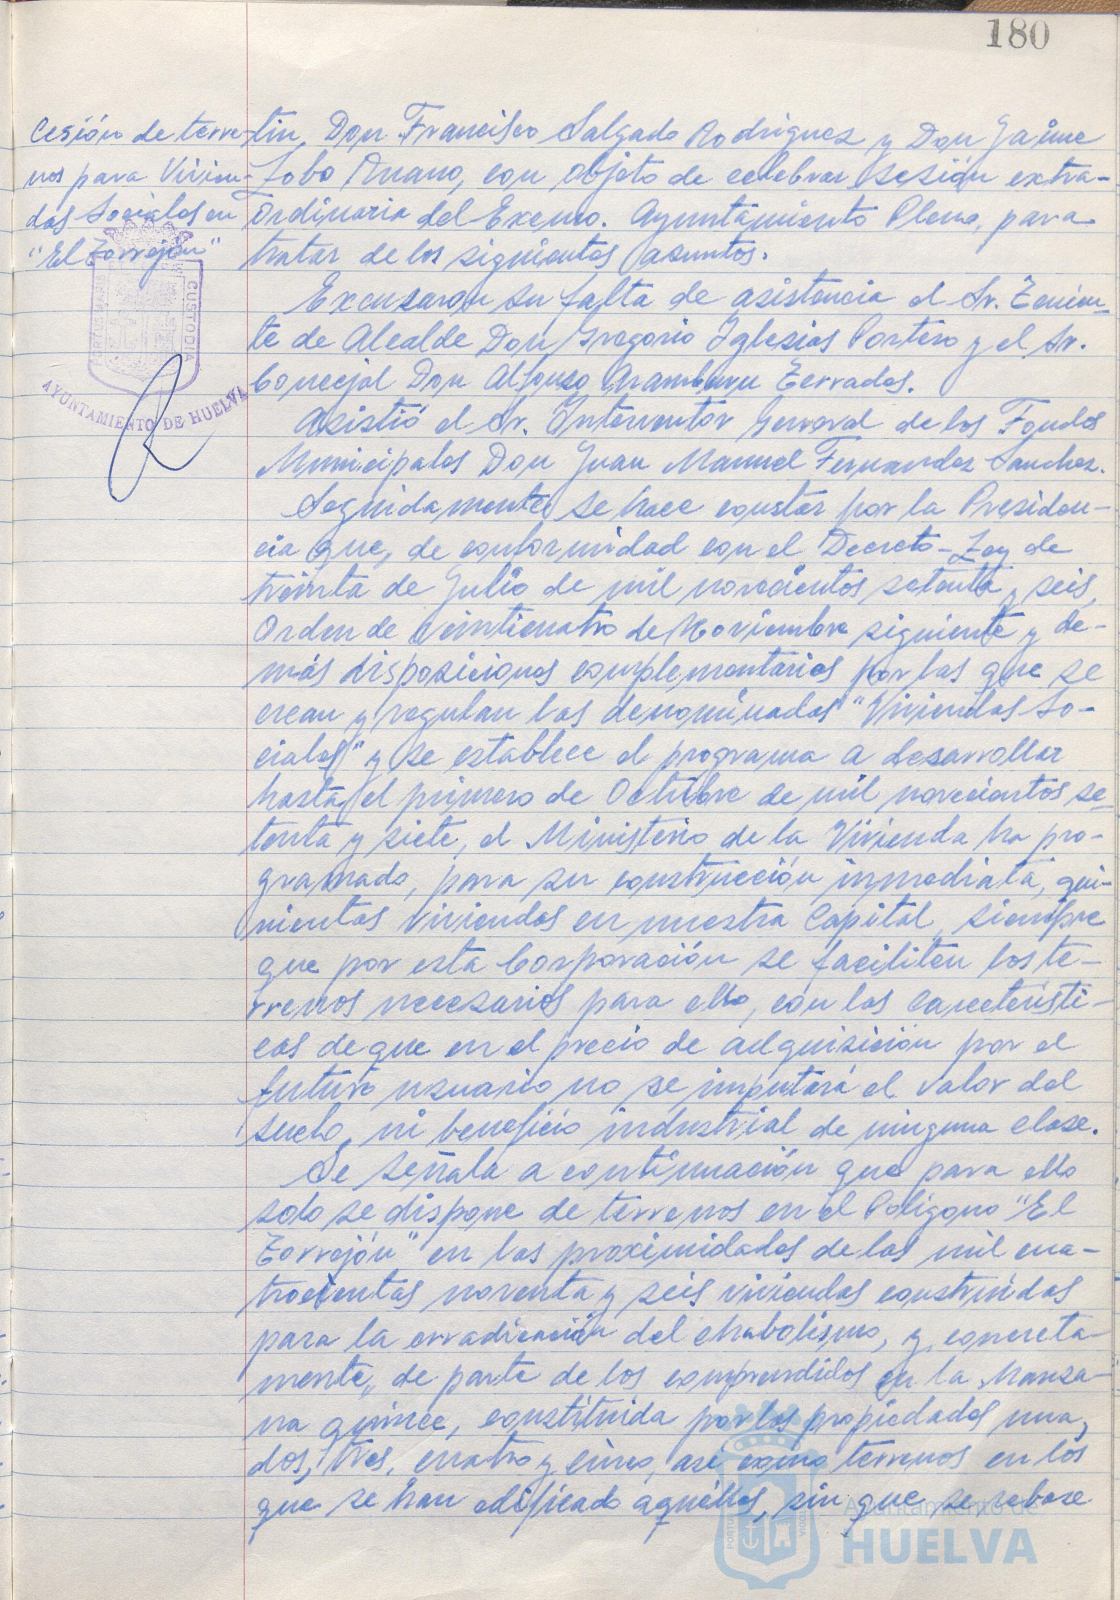 180
Cesión de terre-
nos para Vivien-
das Sociales en
"El Torrejón"
CUSTODIA
AYUNTAMIENTO DE HUELVA
tín, Don Francisco Salgado Rodriguez y Don Jaime
Lobo Asuaro, con objeto de celebrar sesión extra-
ordinaria del Excmo. Ayuntamiento Pleno, para
tratar de los siguientes asuntos.
Excusaron su falta de asistencia el Sr. Tenien-
te de Alcalde Don Gregorio Iglesias Portero y el Sr.
Concejal Don Alfonso Aramburu Terrades.
Asistió el Sr. Interventor General de los Fondos
Municipales Don Juan Manuel Fernandez Sanchez.
Seguidamente se hace constar por la Presiden-
cia que, de conformidad con el Decreto-Ley de
treinta de Julio de mil novecientos setenta y seis,
Orden de veinticuatro de Noviembre siguiente y de-
más disposiciones complementarias por las que se
crean y regulan las denominadas "Viviendas So-
ciales" y se establece el programa a desarrollar
hasta el primero de Octubre de mil novecientos se-
tenta y siete, el Ministerio de la Vivienda ha pro-
gramado, para su construcción inmediata, qui-
nientas viviendas en nuestra Capital, siempre
que por esta Corporación se faciliten los te-
rrenos necesarios para ello, con las caracteristi-
cas de que en el precio de adquisición por el
futuro usuario no se imputará el valor del
suelo, ni beneficio industrial de ninguna clase.
Se señala a continuación que para ello
solo se dispone de terrenos en el Poligono "El
Torrejón" en las proximidades de las mil cua-
trocientas noventa y seis viviendas construidas
para la erradicación del chabolismo, y, concreta-
mente, de parte de los comprendidos en la Manza-
na quince, constituida por las propiedades una,
dos, tres, cuatro y cinco, asi como terrenos en los
que se han edificado aquéllas, sin que se rebase
Ayuntamiento de
HUELVA